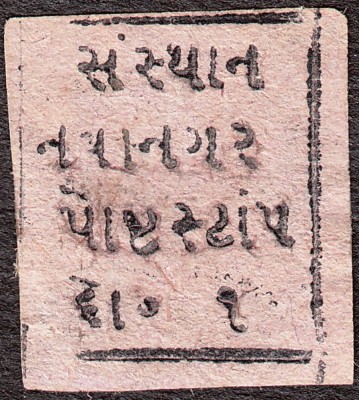 સંસ્થાન
નવાનગર
પોષ્ટસ્ટાંપ
દો૦ ૧